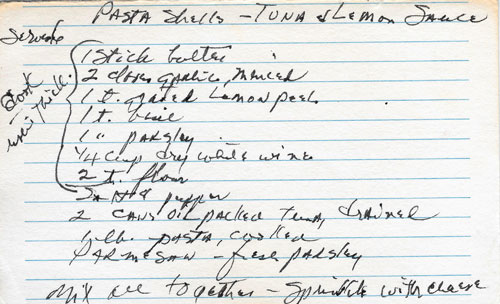 Pasta Shells - Tuna & Lemon Sauce
Serves 6
Cook
until thick.
1 stick butter
2 cloves garlic, minced
1 t. grated Lemon peel
1 t.
1 " parsley
1/4 cup dry white wine
2 T. flour
Salt & pepper
2 cans oil packed tuna, drained
lb. pasta, cooked
Parmesan - fresh parsley
Mix all together - Sprinkle with cheese